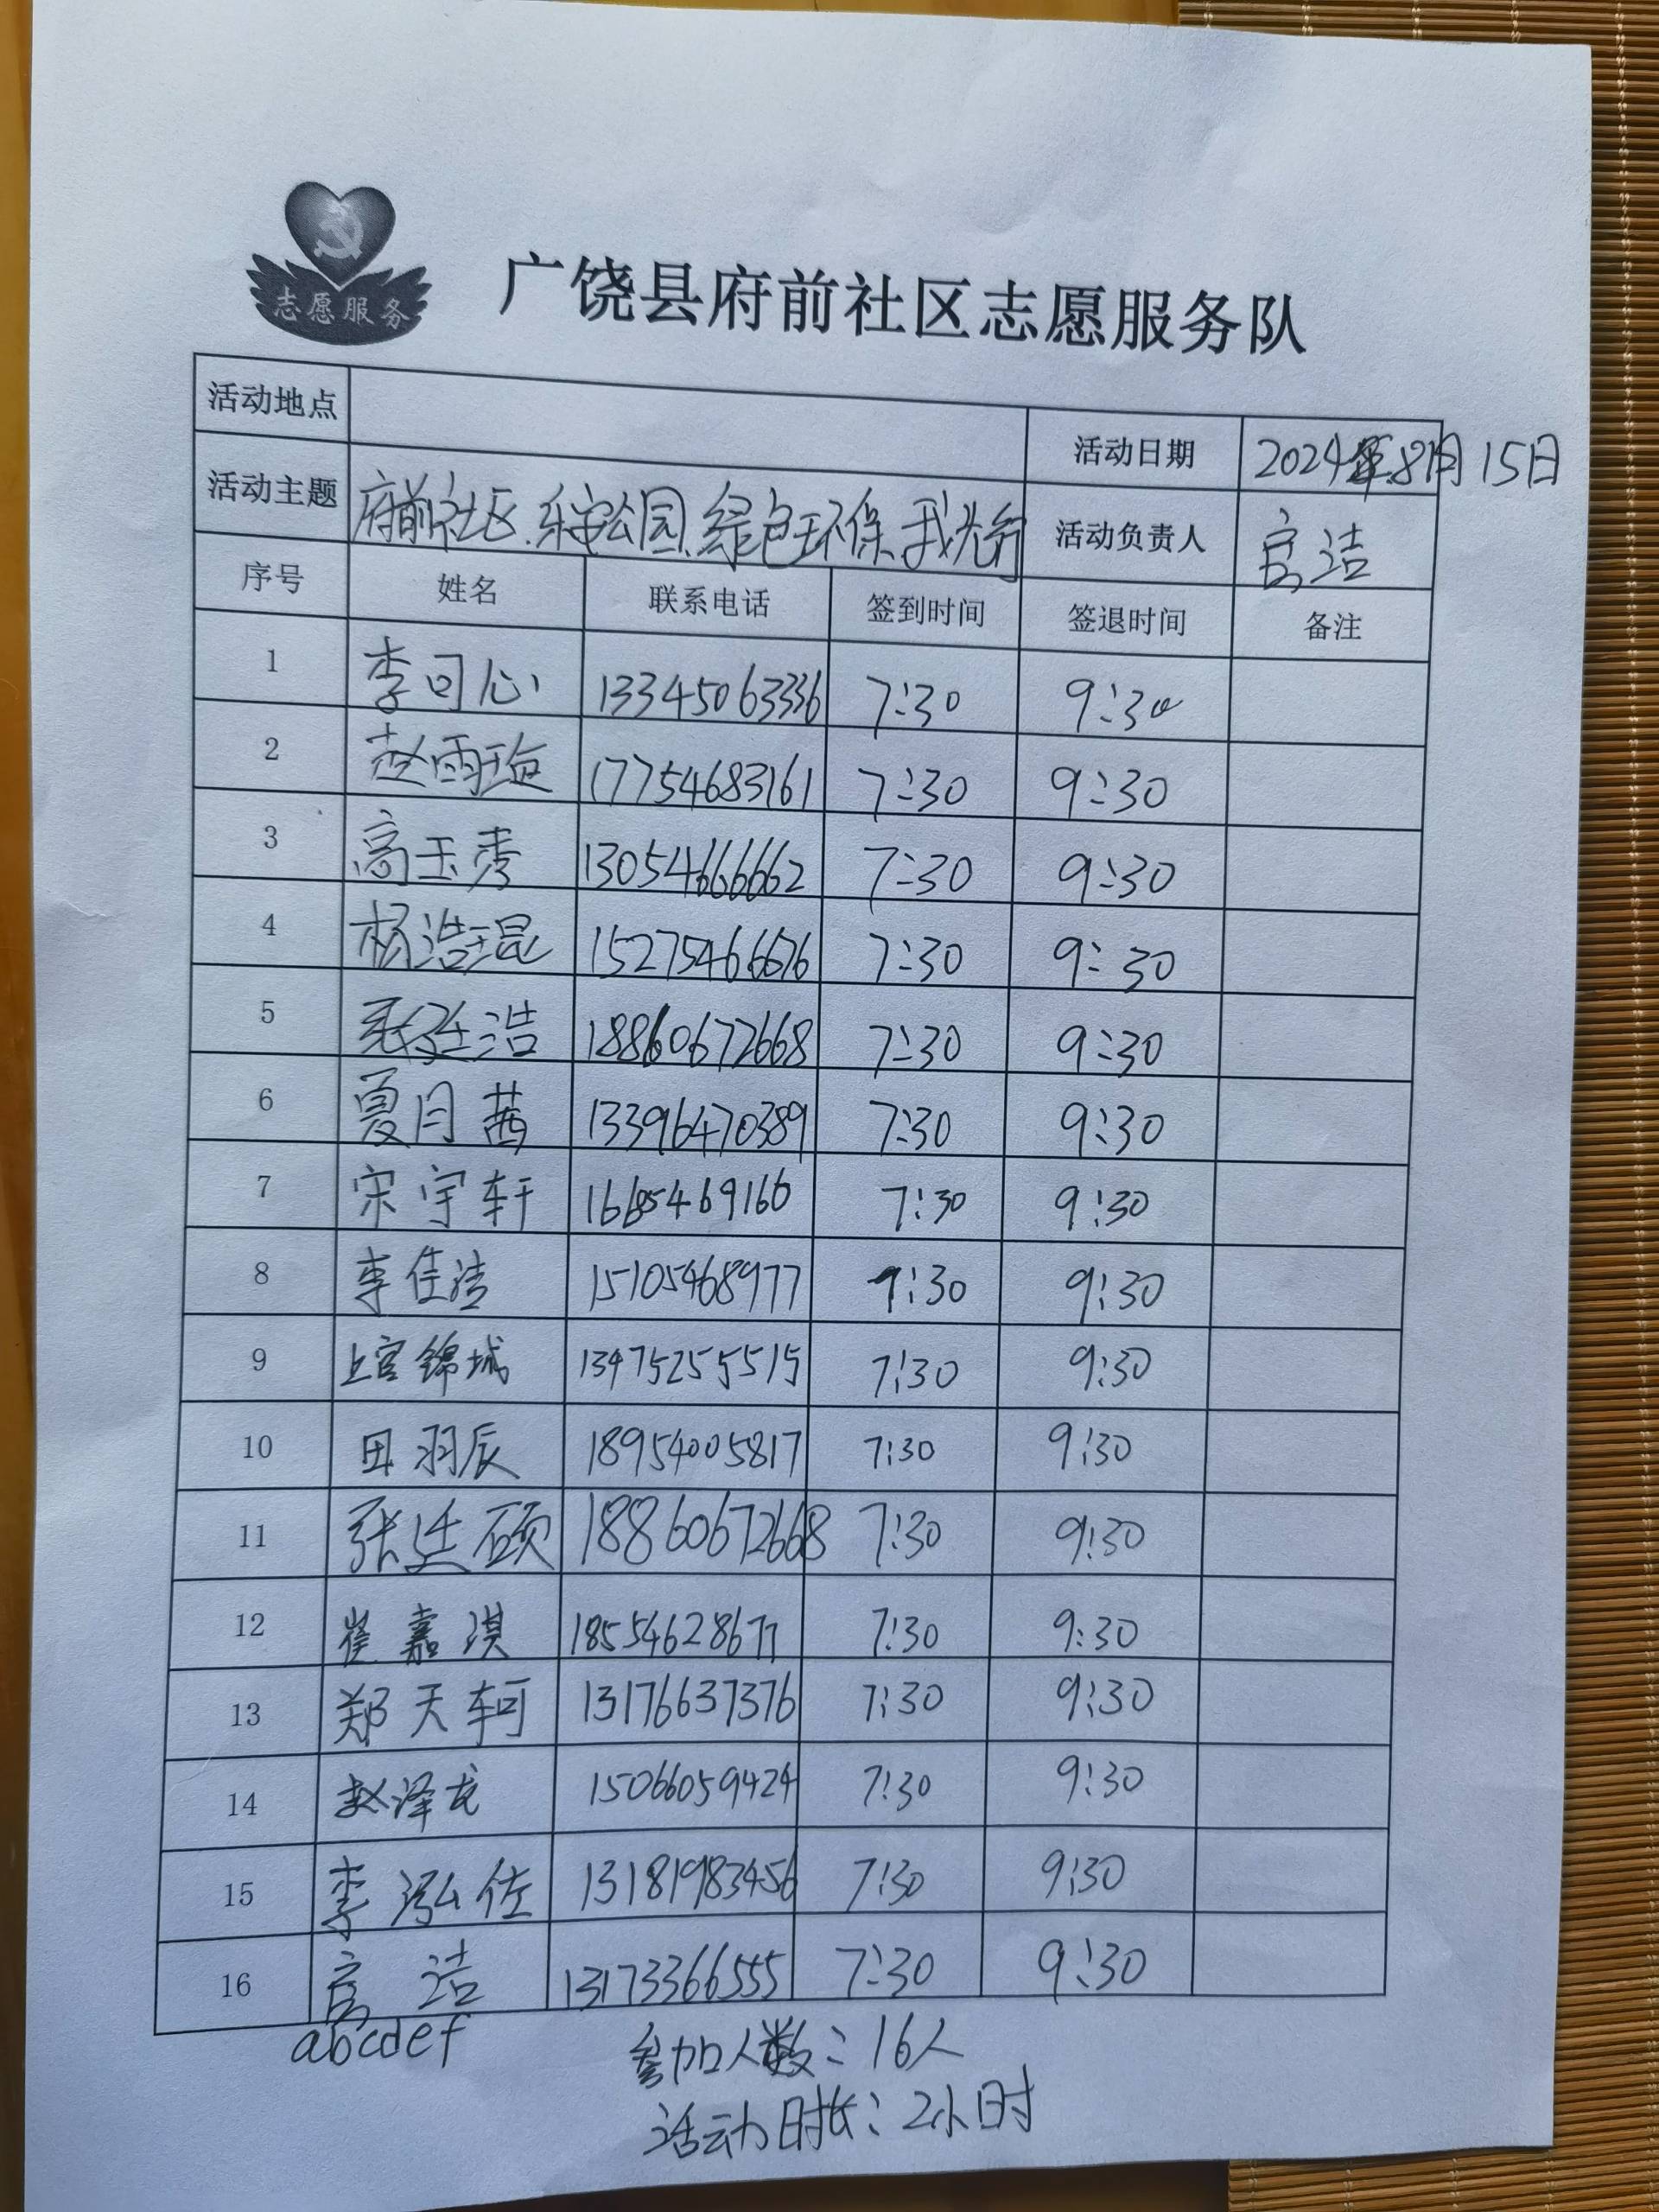 志愿服务
广饶县府前社区志愿服务队
活动地点 活动日期 2024年8月15日
活动主题 府前社区.乐安公园.绿色环保.我先行 活动负责人 官洁
序号 姓名 联系电话 签到时间 签退时间 备注
1 李可心 13345063336 7:30 9:30
2 赵雨 17754683161 7:30 9:30
3 高玉秀 13054666662 7:30 9:30
4 杨浩琨 15275466676 7:30 9:30
5 浩 18860672668 7:30 9:30
6 夏月茜 13396470389 7:30 9:30
7 宋宇轩 7:30 9:30
8 李佳洁 15105468977 9:30
9 上官锦城 13475255515 7:30 9:30
10 田羽辰 18954005817 7:30 9:30
11 张廷硕 18860672668 7:30 9:30
12 崔嘉淇 18554628677 7:30 9:30
13 郑天轲 13176637376 7:30 9:30
14 赵泽龙 15066059424 7:30 9:30
15 李泓佐 13181983456 7:30 9:30
16 官洁 13173366555 7:30 9:30
abcdef 参加人数:16人
活动时长:2小时